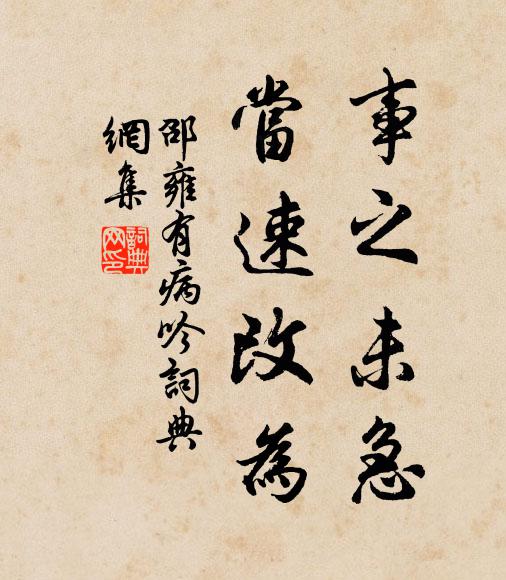 事之未急
當速改為
邵雍有病吟詞典
網集
詞典
網印